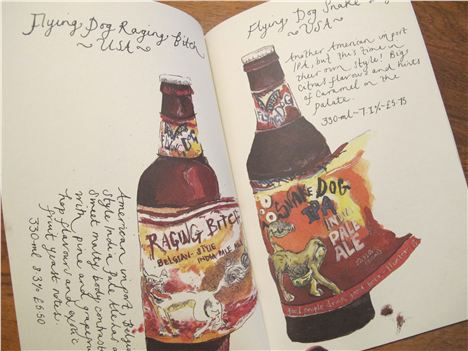 Flying Dog Raging Bitch
~ USA ~
FLYING DOG
RAGING BITCH
BELGIAN-STYLE
INDIA PALE ALE
American import Belgian
Style India Pale Ale has a
Sweet malty body contrasting
with pine and grapefruit
hop flavours and exotic
fruit yeast notes.
330ml 8.3% £3.50
Flying Dog Snake Dog
~ USA ~
Another American import
IPA, but this time in
their own style! Big
Citrus flavours and hints
of Caramel on the
palate.
330ml ~ 7.1% ~ £3.75
DOG
SNAKE DOG
IPA
INDIA
PALE
ALE
good people drink good beer